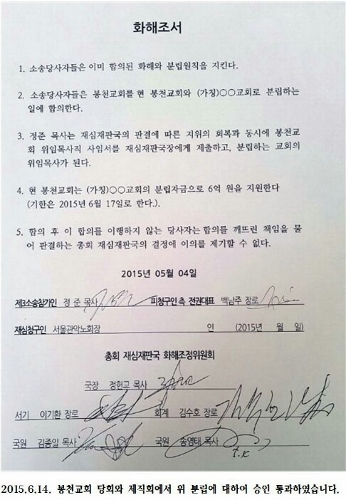 화해조서
1. 소송당사자들은 이미 합의된 화해와 분립원칙을 지킨다.
2. 소송당사자들은 봉천교회를 현 봉천교회와 (가칭)○○교회로 분립하는
일에 합의한다.
3. 정준 목사는 재심재판국의 판결에 따른 지위의 회복과 동시에 봉천교
회 위임목사직 사임서를 재심재판국장에게 제출하고, 분립하는 교회의
위임목사가 된다.
4. 현 봉천교회는 (가칭)○○교회의 분립자금으로 6억 원을 지원한다
(기한은 2015년 6월 17일로 한다.).
5. 합의 후 이 합의를 이행하지 않는 당사자는 합의를 깨뜨린 책임을 물
어 판결하는 총회 재심재판국의 결정에 이의를 제기할 수 없다.
2015년 05월 04일
제3소송참가인 정 준 목사 피청구인 측 전권대표 백남주 장로
재심청구인 서울관악노회장 연 (2015년 월 일)
총회 재심재판국 화해조정위원회
국장 정헌교 목사
서기 이기환 장로 회계 김수호 장로
국원 김종일 목사 국원 송영태 목사
2015.6.14. 봉천교회 당회와 제직회에서 위 분립에 대하여 승인 통과하였습니다.